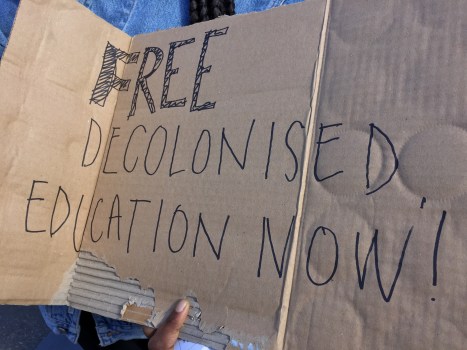 FREE
DECOLONISED,
EDUCATION NOW!